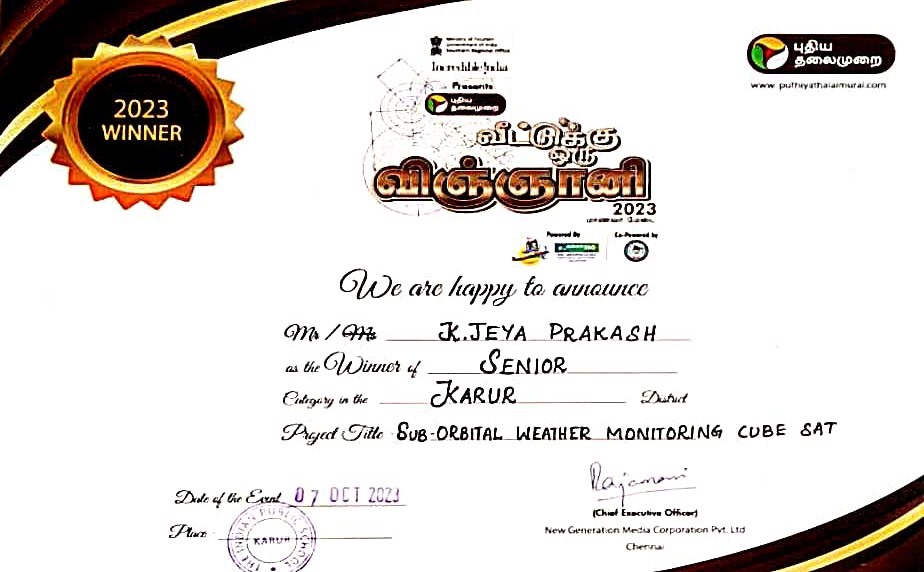 2023
WINNER
Ministry of Tourism
Government of India
Southern Regional Office
Incredible India
Presents
புதிய
தலைமுறை
வீட்டுக்கு
ஒரு
விஞ்ஞானி
2023
Powered By
Co-Powered by
புதிய
தலைமுறை
www.puthiyathalaimurai.com
We are happy to announce
Mr / Ms K.JEYA PRAKASH
as the Winner of SENIOR
Category in the KARUR District
Project Title SUB-ORBITAL WEATHER MONITORING CUBE SAT
Date of the Event 07 OCT 2023
Place
THE INDIAN PUBLIC SCHOOL
KARUR
Rajamani
(Chief Executive Officer)
New Generation Media Corporation Pvt. Ltd
Chennai